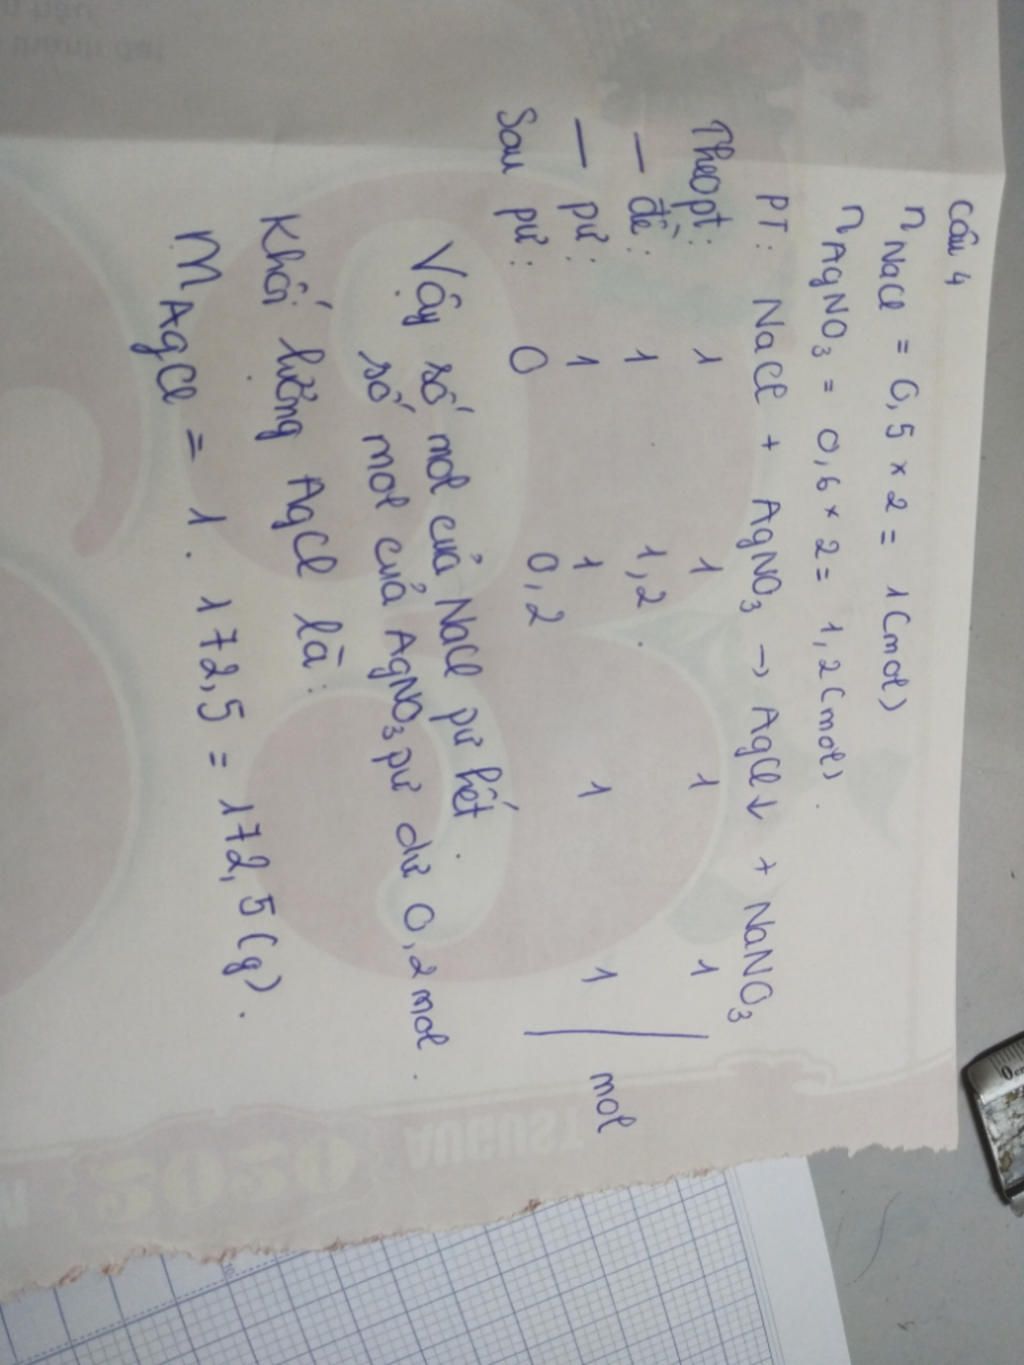 Câu 4
nNaCl = 0,5 × 2 = 1 (mol)
nAgNO3 = 0,6 × 2 = 1,2 (mol).
PT: NaCl + AgNO3 → AgCl↓ + NaNO3
Theo pt: 1 1 1 1
— đề: 1 1,2
— pứ: 1 1 1 1 mol
Sau pứ: 0 0,2
Vậy số mol của NaCl pứ hết.
số mol của AgNO3 pứ dư 0,2 mol.
Khối lượng AgCl là:
mAgCl = 1 . 172,5 = 172,5 (g).
AUGUST
2020
0cm